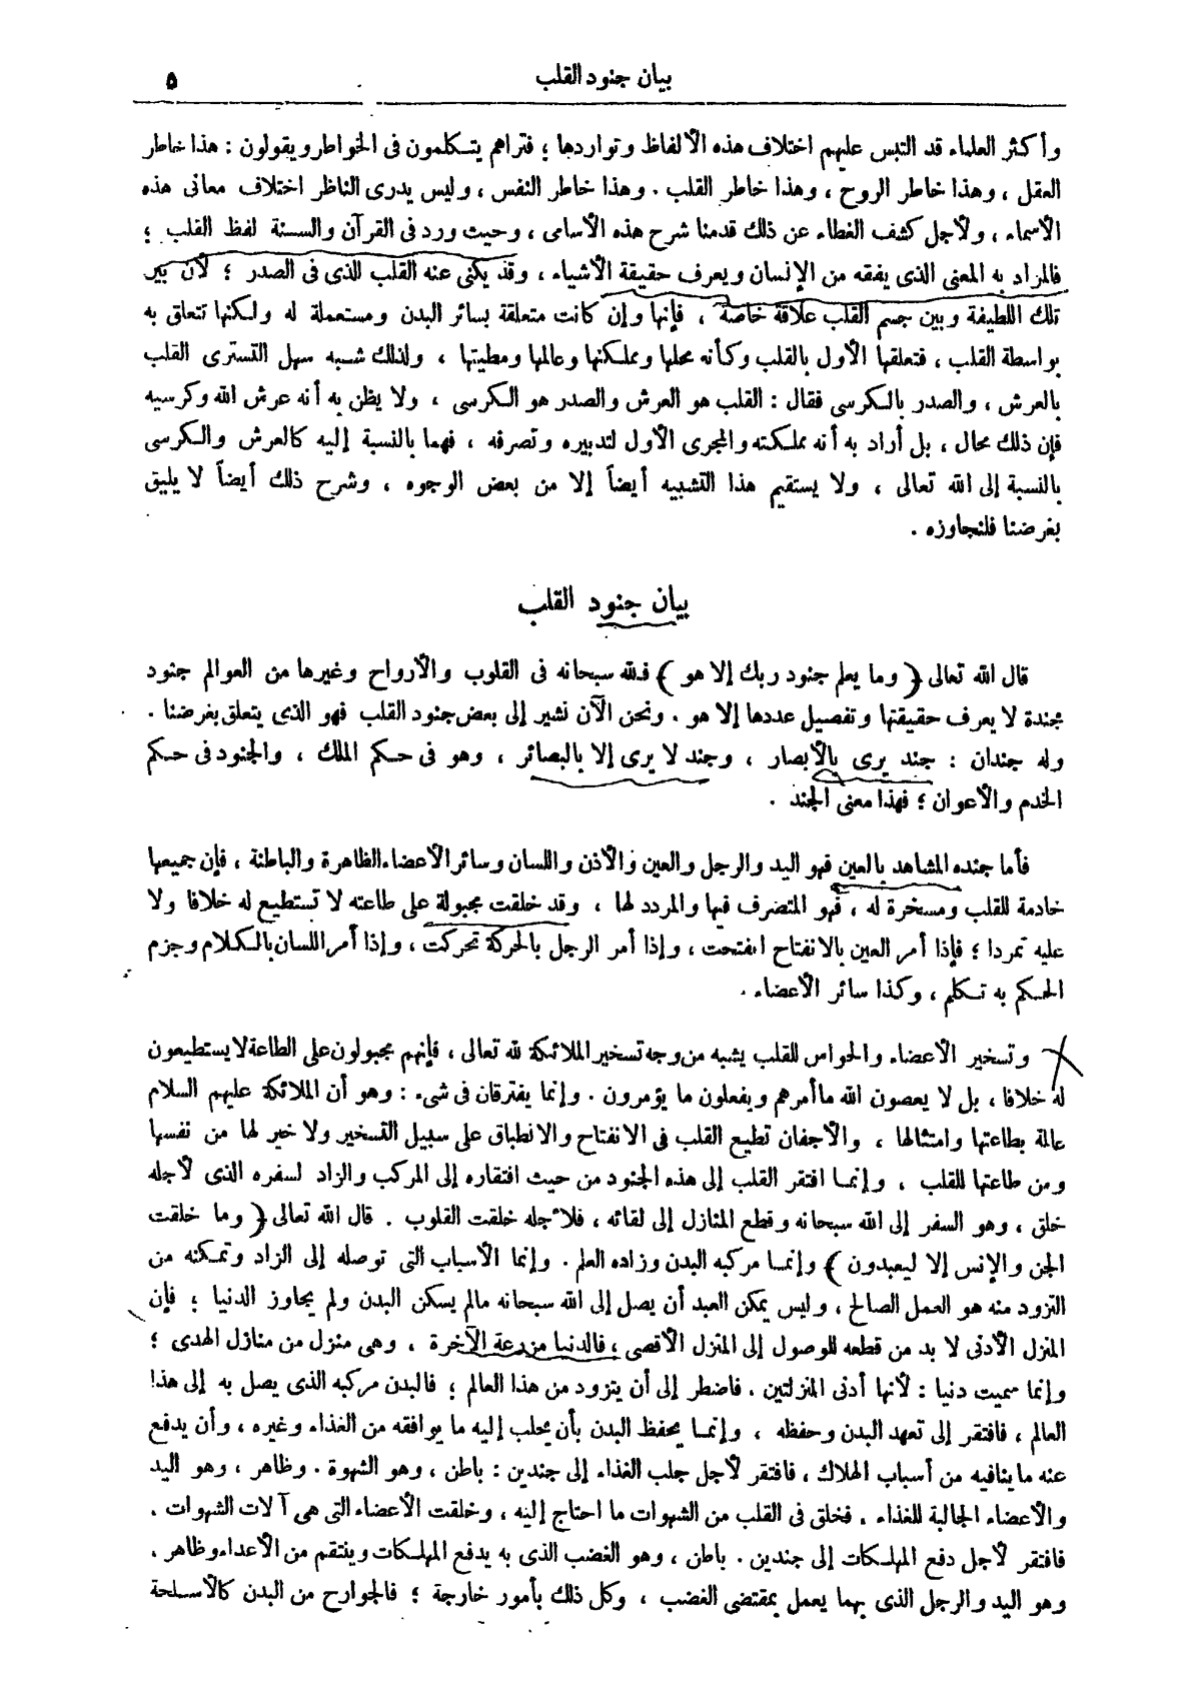 بيان جنود القلب
٥
وأكثر العلماء قد التبس عليهم اختلاف هذه الألفاظ وتواردها ؛ فتراهم يتكلمون فى الخواطر ويقولون : هذا خاطر
العقل ، وهذا خاطر الروح ، وهذا خاطر القلب . وهذا خاطر النفس ، وليس يدرى الناظر اختلاف معانى هذه
الأسماء ، ولأجل كشف الغطاء عن ذلك قدمنا شرح هذه الأسامى ، وحيث ورد فى القرآن والسنة لفظ القلب ؛
فالمراد به المعنى الذى يفقه من الإنسان ويعرف حقيقة الأشياء ، وقد يكنى عنه القلب الذى فى الصدر ؛ لأن بين
تلك اللطيفة وبين جسم القلب علاقة خاصة ، فإنها وإن كانت متعلقة بسائر البدن ومستعملة له ولكنها تتعلق به
بواسطة القلب ، فتعلقها الأول بالقلب وكأنه محلها ومملكتها وعالمها ومطيتها ، ولذلك شبه سهل التسترى القلب
بالعرش ، والصدر بالكرسى فقال : القلب هو العرش والصدر هو الكرسى ، ولا يظن به أنه عرش الله وكرسيه
فإن ذلك محال ، بل أراد به أنه مملكته والمجرى الأول لتدبيره وتصرفه ، فهما بالنسبة إليه كالعرش والكرسى
بالنسبة إلى الله تعالى ، ولا يستقيم هذا التشبيه أيضاً إلا من بعض الوجوه ، وشرح ذلك أيضاً لا يليق
بغرضنا فلنجاوزه .
بيان جنود القلب
قال الله تعالى ﴿ وما يعلم جنود ربك إلا هو ﴾ فلله سبحانه فى القلوب والأرواح وغيرها من العوالم جنود
مجندة لا يعرف حقيقتها وتفصيل عددها إلا هو . ونحن الآن نشير إلى بعض جنود القلب فهو الذى يتعلق بغرضنا .
وله جندان : جند يرى بالأبصار ، وجند لا يرى إلا بالبصائر ، وهو فى حكم الملك ، والجنود فى حكم
الخدم والأعوان ؛ فهذا معنى الجند .
فأما جنده المشاهد بالعين فهو اليد والرجل والعين والأذن واللسان وسائر الأعضاء الظاهرة والباطنة ، فإن جميعها
خادمة للقلب ومسخرة له ، فهو المتصرف فيها والمردد لها ، وقد خلقت مجبولة على طاعته لا تستطيع له خلافا ولا
عليه تمردا ؛ فإذا أمر العين بالانفتاح انفتحت ، وإذا أمر الرجل بالحركة تحركت ، وإذا أمر اللسان بالكلام وجزم
الحكم به تكلم ، وكذا سائر الأعضاء .
وتسخير الأعضاء والحواس للقلب يشبه من وجه تسخير الملائكة لله تعالى ، فإنهم مجبولون على الطاعة لا يستطيعون
له خلافا ، بل لا يعصون الله ما أمرهم ويفعلون ما يؤمرون . وإنما يفترقان فى شىء : وهو أن الملائكة عليهم السلام
عالمة بطاعتها وامتثالها ، والأجفان تطيع القلب فى الانفتاح والانطباق على سبيل التسخير ولا خبر لها من نفسها
ومن طاعتها للقلب ، وإنما افتقر القلب إلى هذه الجنود من حيث افتقاره إلى المركب والزاد لسفره الذى لأجله
خلق ، وهو السفر إلى الله سبحانه وقطع المنازل إلى لقائه ، فلأجله خلقت القلوب . قال الله تعالى ﴿ وما خلقت
الجن والإنس إلا ليعبدون ﴾ وإنما مركبه البدن وزاده العلم . وإنما الأسباب التى توصله إلى الزاد وتمكنه من
التزود منه هو العمل الصالح ، وليس يمكن العبد أن يصل إلى الله سبحانه مالم يسكن البدن ولم يجاوز الدنيا ؛ فإن
المنزل الأدنى لا بد من قطعه للوصول إلى المنزل الأقصى ، فالدنيا مزرعة الآخرة ، وهى منزل من منازل الهدى ؛
وإنما سميت دنيا : لأنها أدنى المنزلتين . فاضطر إلى أن يتزود من هذا العالم ؛ فالبدن مركبه الذى يصل به إلى هذا
العالم ، فافتقر إلى تعهد البدن وحفظه ، وإنما يحفظ البدن بأن يجلب إليه ما يوافقه من الغذاء وغيره ، وأن يدفع
عنه ما ينافيه من أسباب الهلاك ، فافتقر لأجل جلب الغذاء إلى جندين : باطن ، وهو الشهوة . وظاهر ، وهو اليد
والأعضاء الجالبة للغذاء . فخلق فى القلب من الشهوات ما احتاج إليه ، وخلقت الأعضاء التى هى آلات الشهوات .
فافتقر لأجل دفع المهلكات إلى جندين . باطن ، وهو الغضب الذى به يدفع المهلكات وينتقم من الأعداء وظاهر .
وهو اليد والرجل الذى بهما يعمل بمقتضى الغضب ، وكل ذلك بأمور خارجة ؛ فالجوارح من البدن كالأسلحة